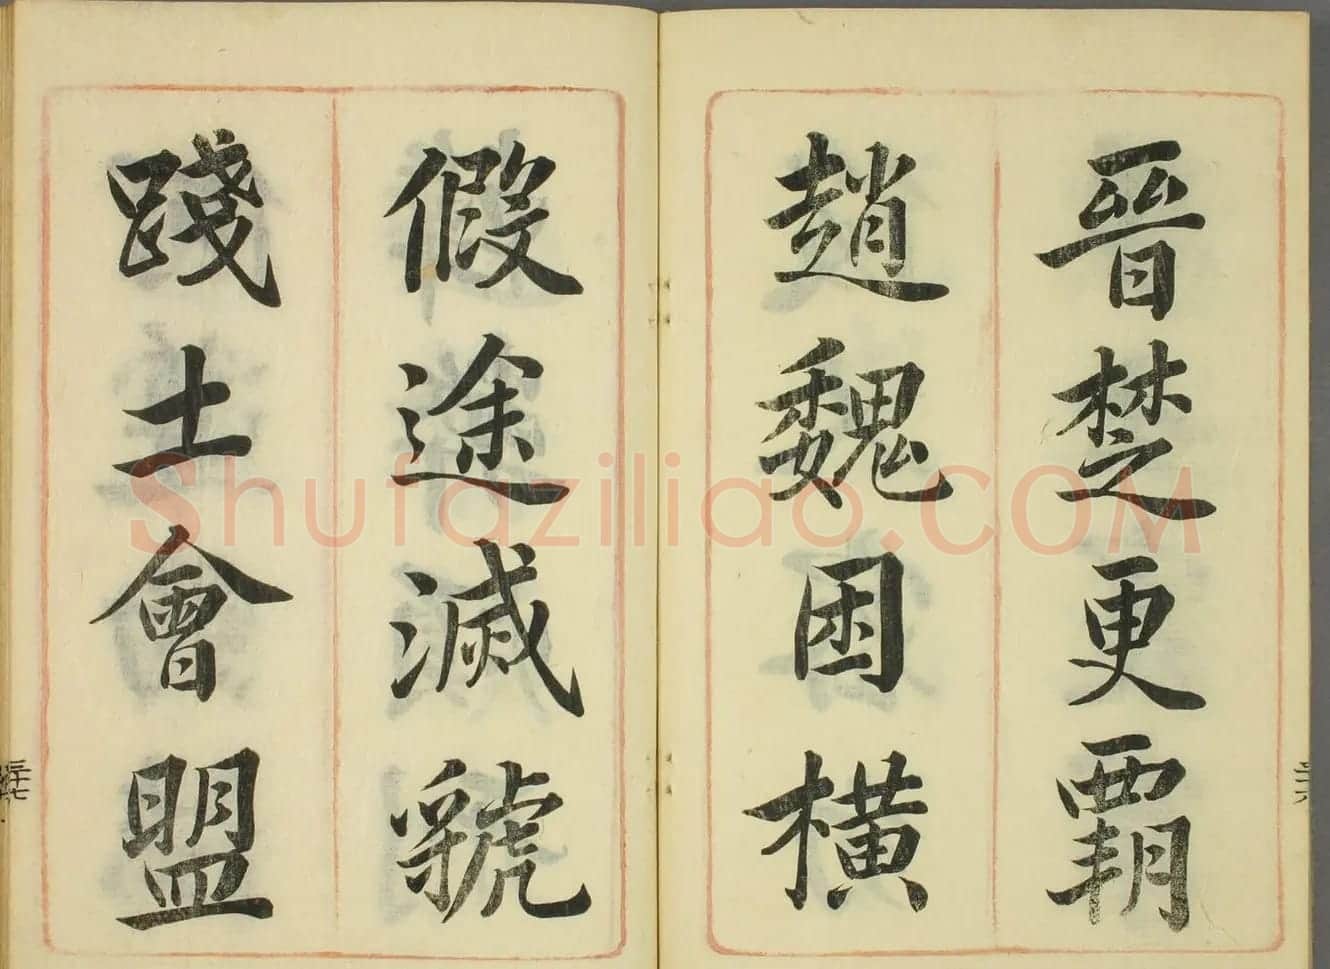 晉楚更霸
趙魏困橫
假途滅虢
踐土會盟
Shufaziliao.COM
三十七